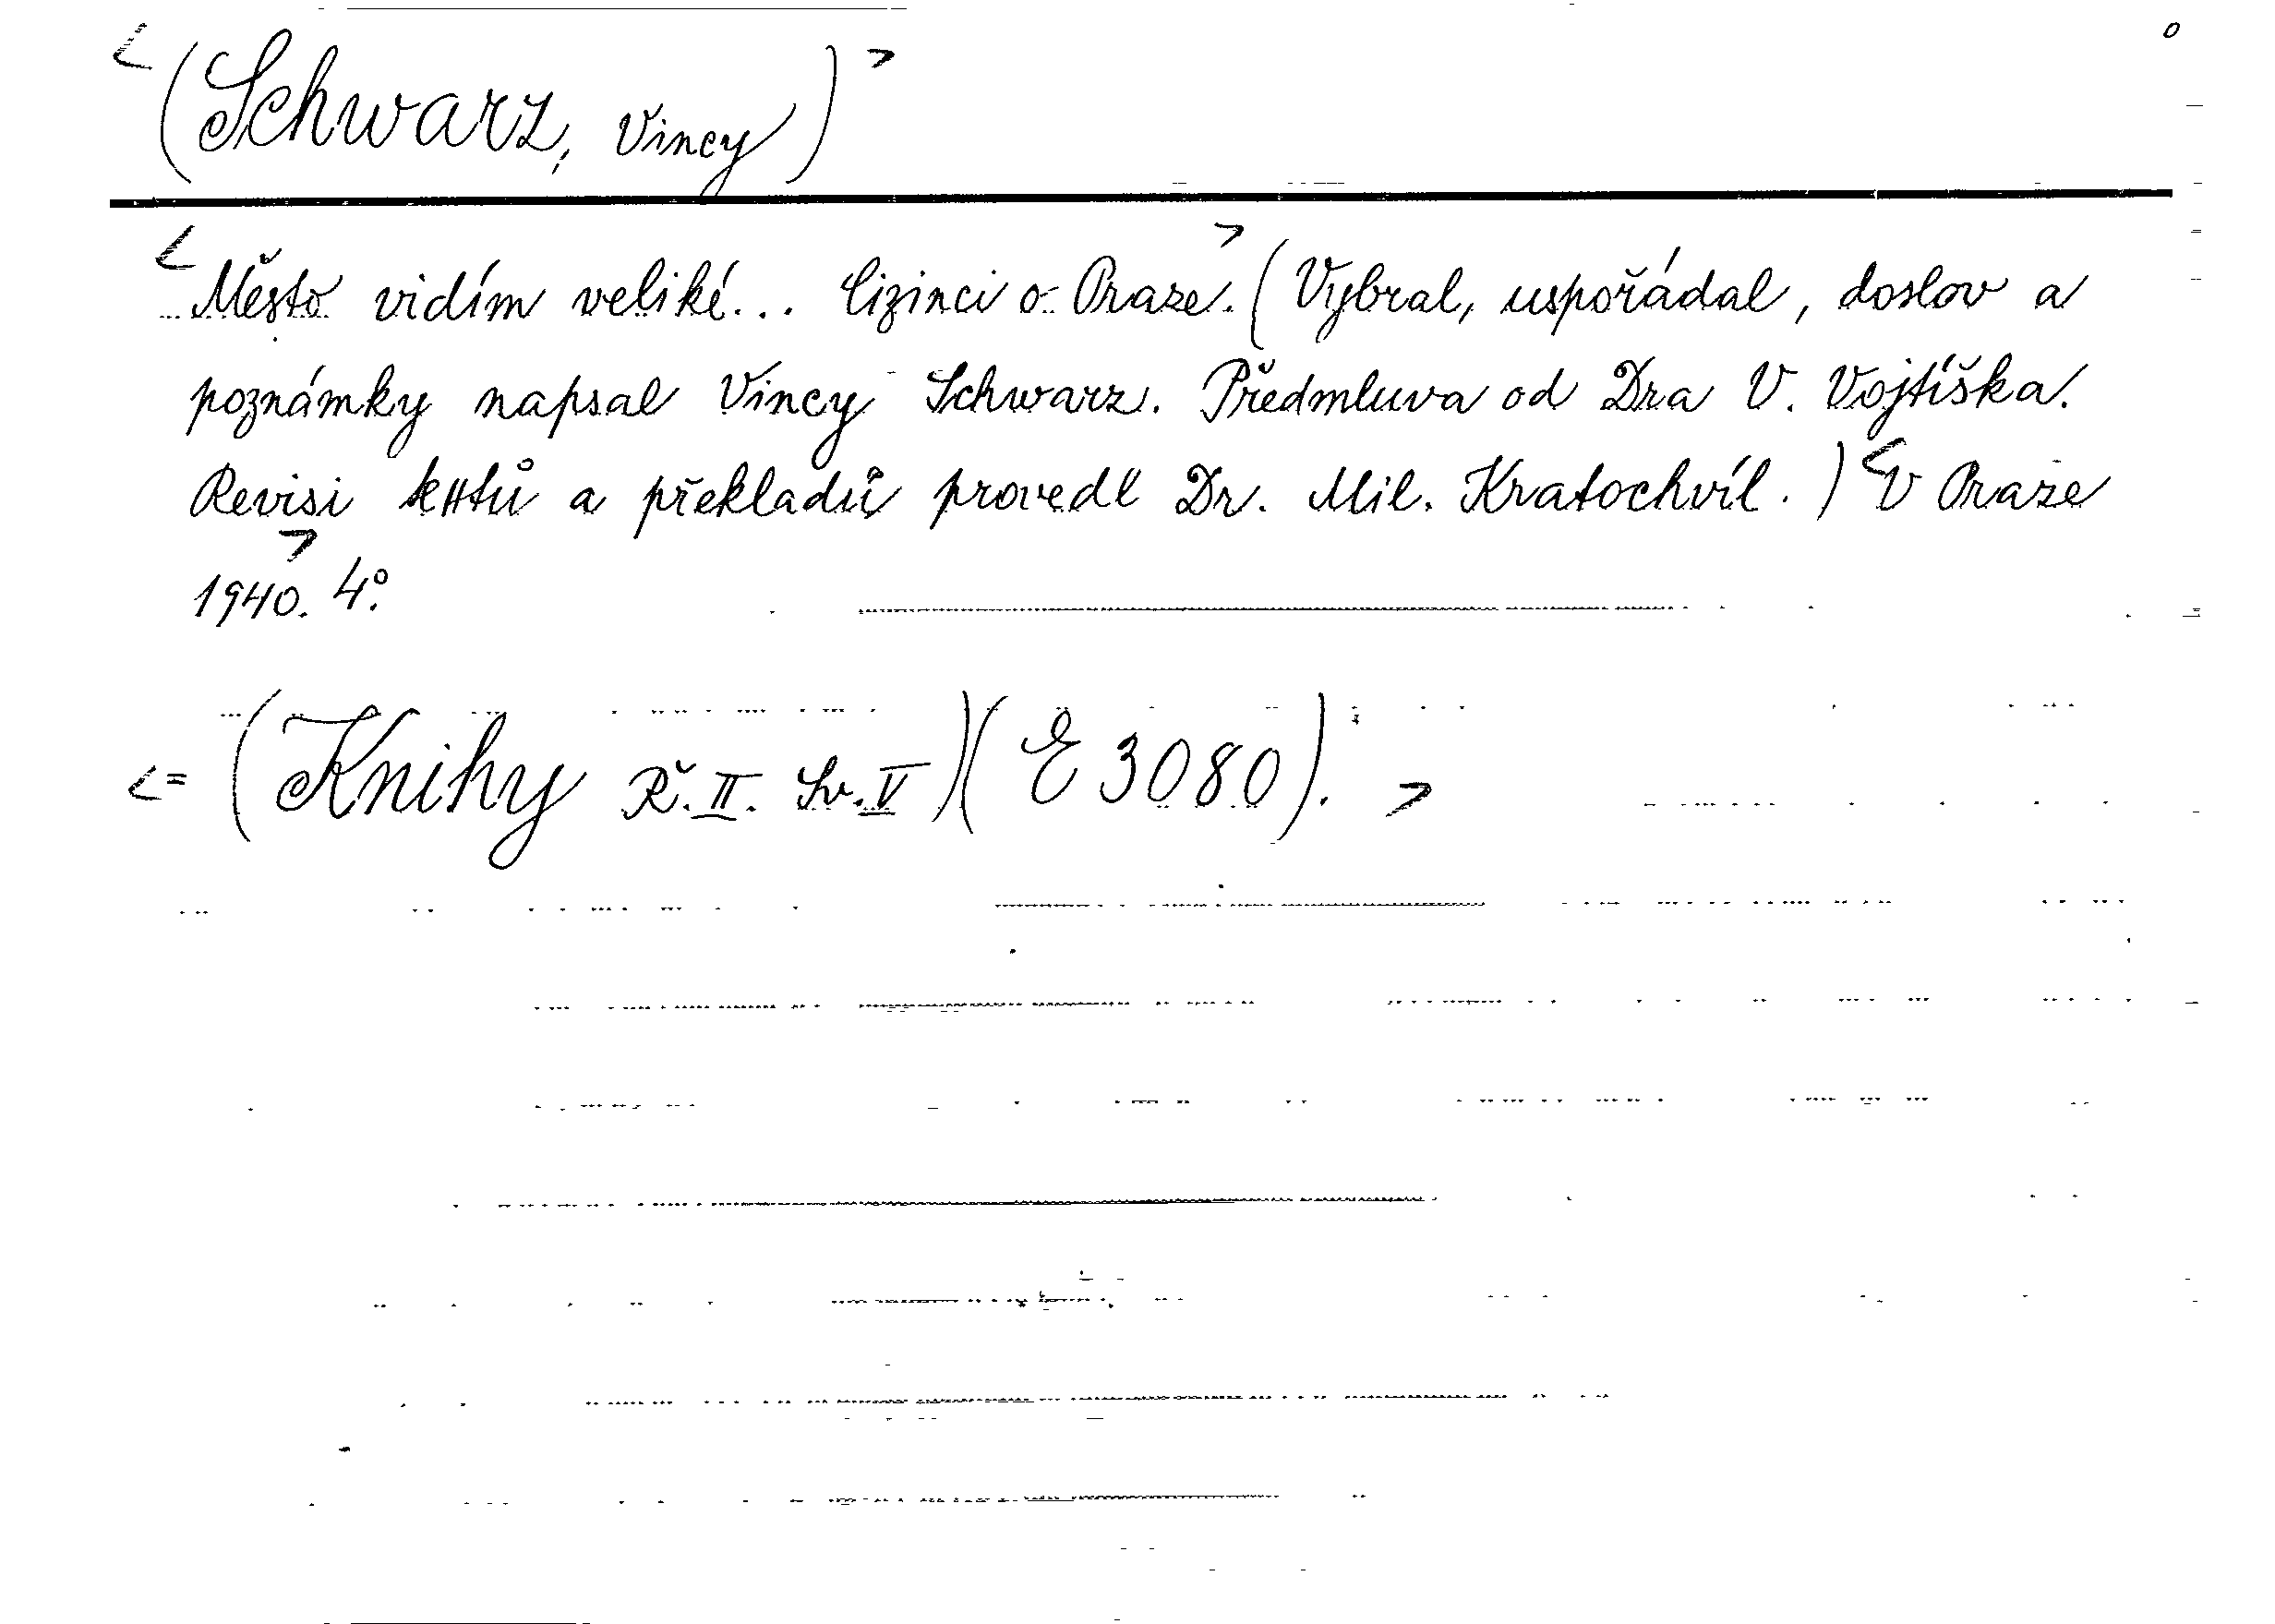 <(Schwarz, Vincy)>
<Město vidím veliké... Cizinci o Praze.>(Vybral, uspořádal, doslov a
poznámky napsal Vincy Schwarz. Předmluva od Dra V. Vojtíška.
Revisi textů a překladů provedl Dr. Mil. Kratochvíl.)<V Praze
1940.> 4°.
<=(Knihy Ř. II. Sv. V)(E 3080).>